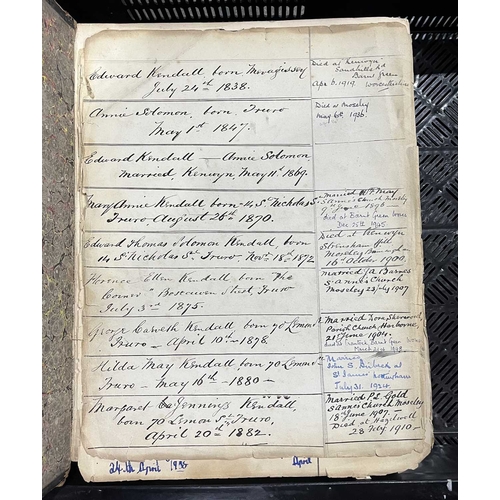 Edward Kendall born Mevagissey
July 24th 1838.
Died at Kenwyn
Barnt Green
Apr 6. 1919. Worcestershire
Annie Solomon, born, Truro
May 1st 1847.
Died at Moseley
May 6th 1936
Edward Kendall — Annie Solomon
Married, Kenwyn May 11th 1869.
Mary Annie Kendall born 14 St Nicholas St
Truro, August 26th 1870.
Married W.P. May
St Anne's Church Moseley
June 1896 —
Died at Barnt Green
Dec 25th 1945.
Edward Thomas Solomon Kendall, born
14 St Nicholas St Truro, Novr 18th 1872
Died at Kenwyn
Strensham Hill
Moseley
16th October 1900.
Florence Ellen Kendall born The
Corner Boscawen Street, Truro
July 3rd 1875.
Married J.A Barnes
St Anne's Church
Moseley 23 July 1907
George Carveth Kendall born 70 Lemon St
Truro — April 10th 1878
Married Dora Sherwood
Parish Church, Harborne,
21 June 1904.
Died Barnt Green
March 21st
Hilda May Kendall born 70 Lemon St
Truro — May 16th — 1880 —
Married
John S.
St James
July 31. 1924.
Margaret Jennings Kendall
born 70 Lemon St Truro,
April 20th 1882.
Married P.S. Gold
St Anne's Church Moseley
18th June 1907. —
Died at Hazelwell
28 July 1910. —
24th April 1936
April